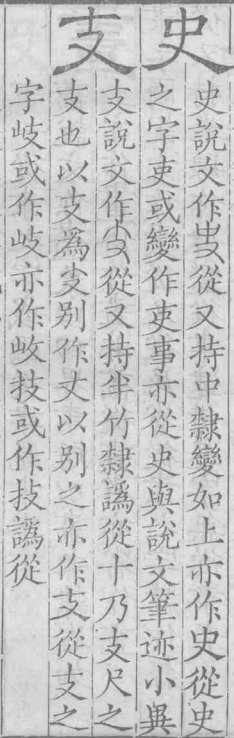 史
史說文作㕜從又持中隸變如上亦作史從史
之字吏或變作吏事亦從史與說文筆迹小異
支
支說文作𠦙從又持半竹隸譌從十乃支尺之
支也以支爲支別作丈以別之亦作支從支之
字岐或作岐亦作岐技或作技譌從